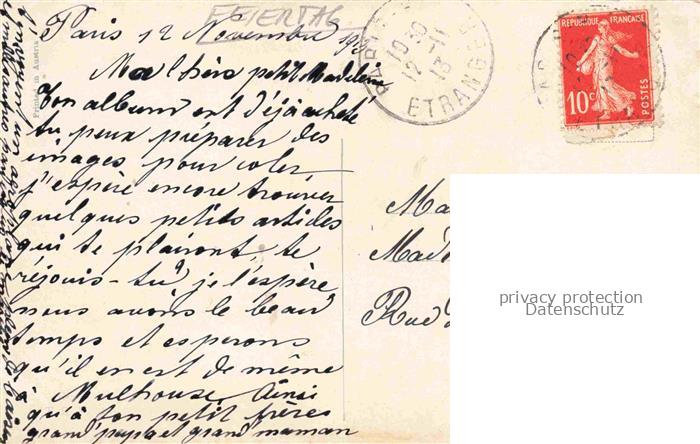 FEIERTAG
Paris 12 Novembre 191
Ma chère petite Madeleine
Ton album est déjà acheté
tu peux préparer des
images pour coler
j'espère encore trouver
quelques petits articles
qui te plairont te
réjouis-tu? je l'espère
nous avons le beau
temps et esperons
qu'il en est de même
à Mulhouse. Ainsi
qu'à ton petit frères
grand papa et grand maman
Printed in Austria
PARIS
10 30
12-11
13
ETRANGER
REPUBLIQUE FRANÇAISE
10c
POSTES
Ma
Mad
Rue
privacy protection
Datenschutz